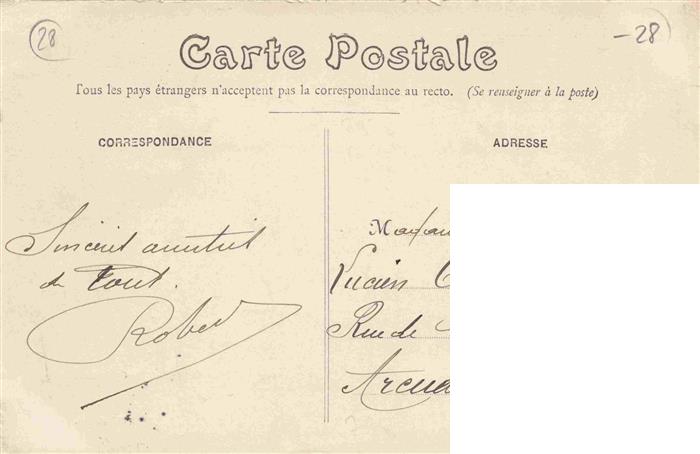 28
-28
Carte Postale
Tous les pays étrangers n'acceptent pas la correspondance au recto. (Se renseigner à la poste)
CORRESPONDANCE
ADRESSE
Sincères amitiés
de Tous.
Robert
Madam
Lucien
Rue de
Arcue